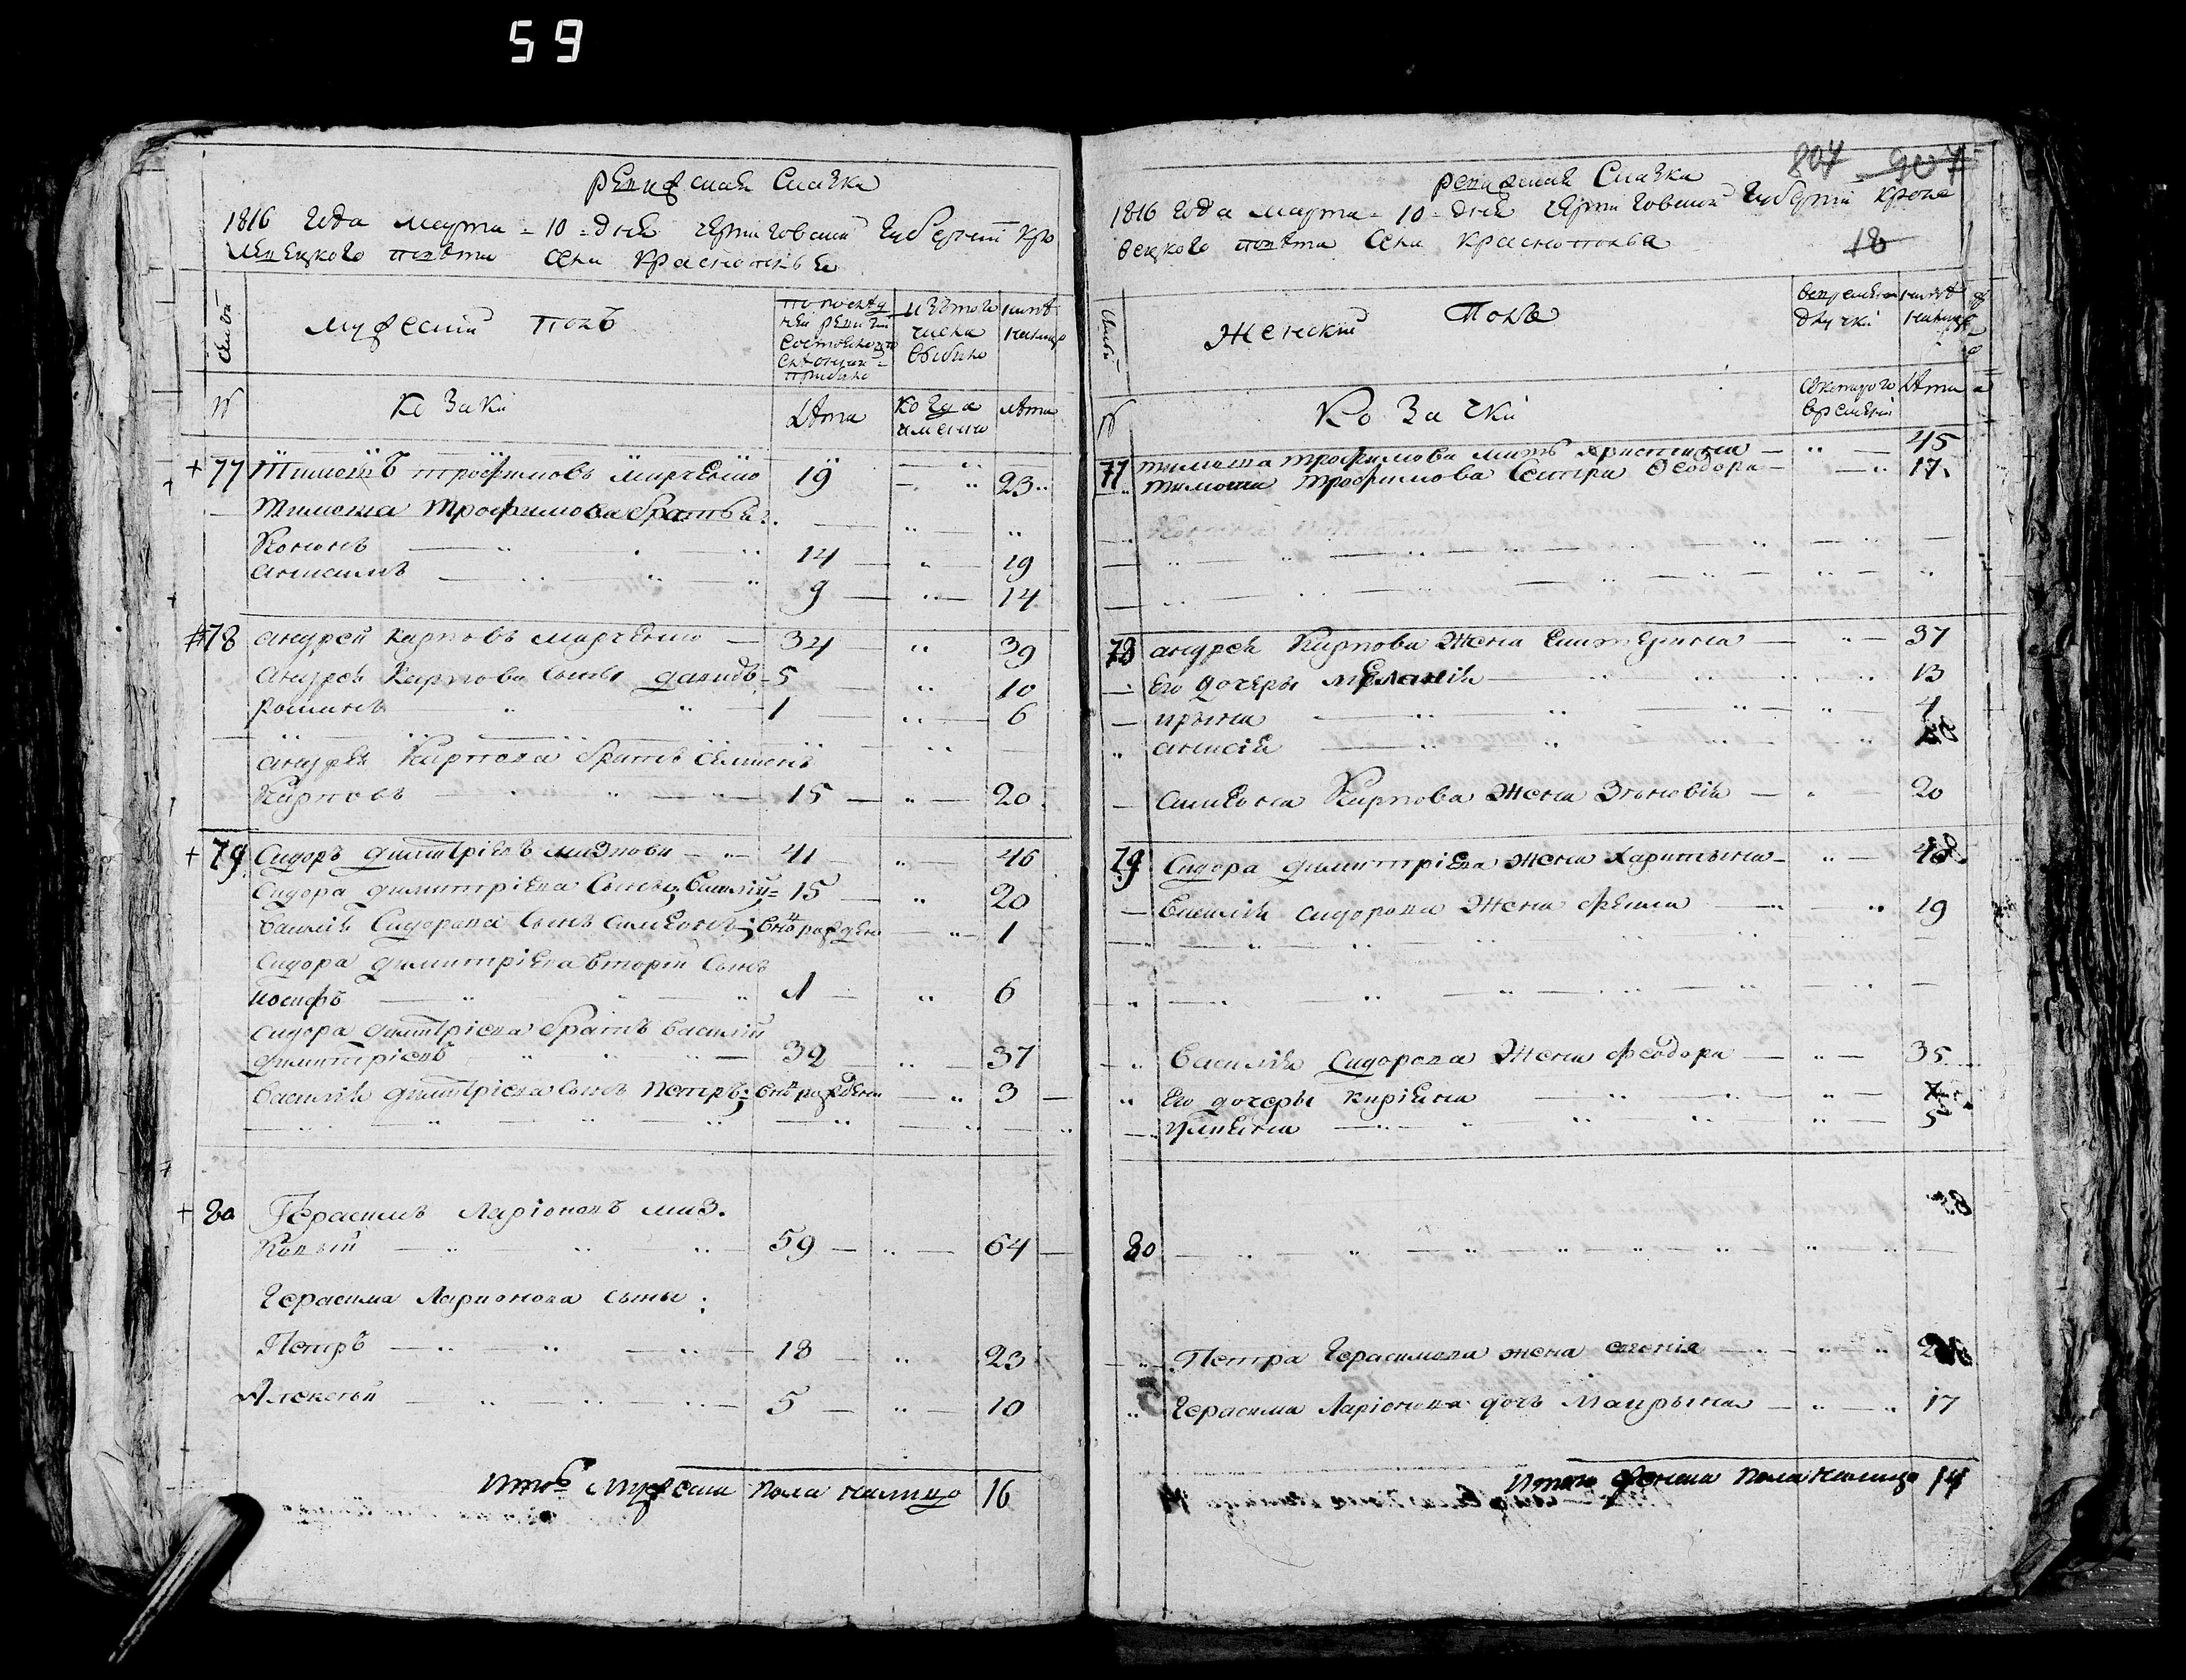 59
Ревизская Сказка
1816 года марта = 10 = дня Черниговской Губернии Кро
левецкого повѣта села Краснополья
семьи
Мужеский полъ
по послѣд
ней ревизии
состояло и
послѣ оной
прибыло
изъ того
числа
выбыло
нынѣ
налицо
№
Козаки
Лѣта
когда
именно
лѣта
+ 77 Тимошъ Трофимовъ Марченко 19 23
Тимоша Трофимова братья
Кононъ 14 19
Анисимъ 9 14
78 Андрей Карповъ Марченко 34 39
Андрея Карпова сыны Давидъ 5 10
Романъ 1 6
Андрея Карпова братъ Симонъ
Карповъ 15 20
+ 79 Сидоръ Димитріевъ 41 46
Сидора Димитріева сыны; Василій 15 20
Василія Сидорова сынъ Симеонъ; 1
Сидора Димитріева вторій сынъ
Иосифъ 1 6
Сидора Димитріева братъ Василій
Димитріевъ 32 37
Василія Димитріева сынъ Петръ; 3
+ 80 Герасимъ Ларіоновъ Маз.
59 64
Герасима Ларионова сыны;
Петръ 18 23
Алексѣй 5 10
Итого мужеска пола налицо 16
807 907
Ревизская Сказка
1816 года марта = 10 = дня Черниговской Губерніи Кроле
вецкого повѣта села Краснополья
18
семьи
Женский
Полъ
во временной
отлучкѣ
нынѣ
налицо
№
Козачки
съ которого
времени
Лѣта
77 Тимоша Трофимова мать Христина 45
Тимоша Трофимова сестра Феодора 17
78 Андрея Карпова жена Екатерина 37
Его дочеры Меланія 13
Ирына
Анисія
Симеона Карпова жена Зѣновія 20
79 Сидора Димитріева жена Харитына
Василія Сидорова жена Фекла 19
Василія Сидорова жена Феодора 35
Его дочеры Киріяна
Уліяна 5
80
Петра Герасимова жена Евгенія
Герасима Ларіонова дочь Маврына 17
Итого женска пола налицо 14